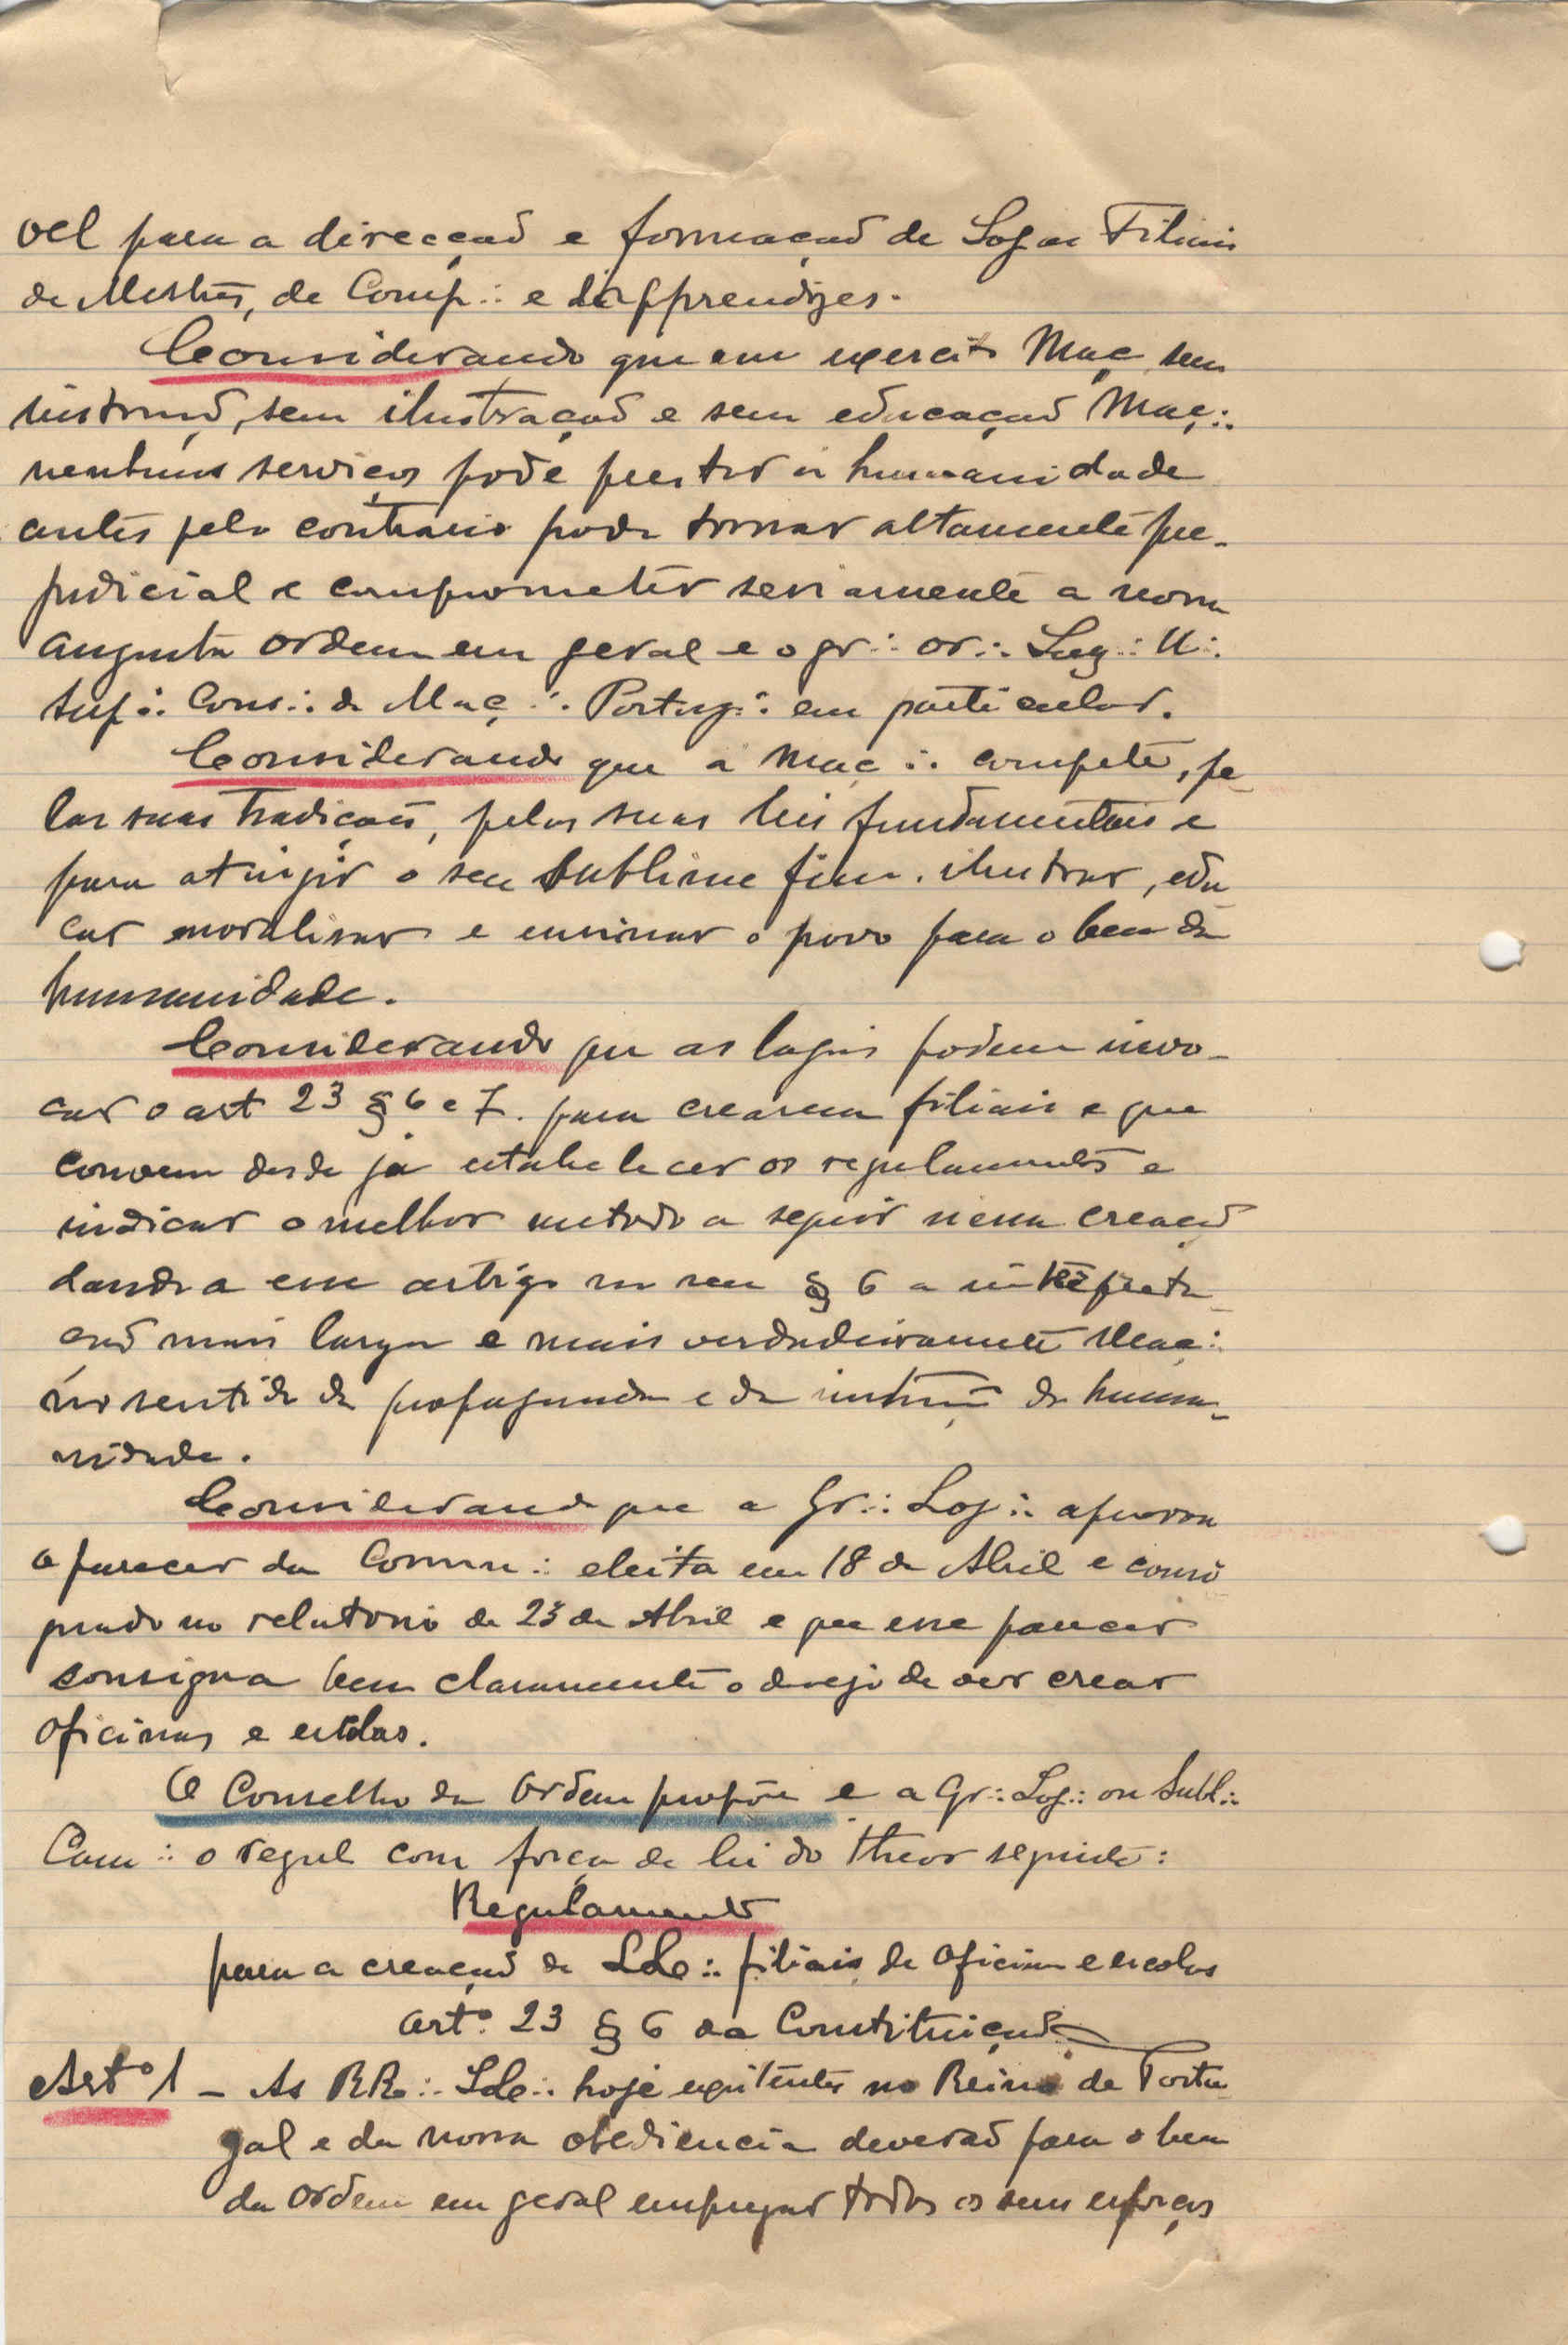 vel para a direcção e formação de Lojas Filiais
de Mestres, de Comp∴ e de Apprendizes.
Considerando que um exercito Maç sem
instrução, sem ilustração e sem educação Maç∴
nenhuns serviços pode prestar á humanidade
antes pelo contrario pode tornar altamente pre-
judicial e comprometer seriamente a nossa
augusta ordem em geral e o gr∴ or∴ Lus∴ U∴
Sup∴ Cons∴ da Maç∴ Portug∴ em particular.
Considerando que a Maç∴ compete, pe-
las suas tradições, pelas suas leis fundamentais e
para atingir o seu sublime fim. ilustrar, edu-
car moralisar e ensinar o povo para o bem da
humanidade.
Considerando que as lojas podem invo-
car o art 23 § 6 e 7. para crearem filiais e que
convem desde já estabelecer os regulamentos e
indicar o melhor metodo a seguir nessa creação
dando a esse artigo no seu § 6 a interpreta-
ção mais larga e mais verdadeiramente Maç∴
no sentido da propaganda e da instrução da huma-
nidade.
Considerando que a Gr∴ Loj∴ aprovou
o parecer da Comm∴ eleita em 18 de Abril e consi
gnado no relatorio de 23 de Abril e que esse parecer
consigna bem claramente o desejo de ver crear
oficinas e escolas.
O Conselho da Ordem propõe e a Gr∴ Loj∴ ou Subl∴
Cam∴ o regul com força de lei do theor seguinte:
Regulamento
para a creação de LLo∴ filiais, de oficinas e escolas
art.º 23 § 6 da Constituição
Art.º 1 - As RRo∴ LLo∴ hoje existentes no Reino de Portu-
gal e da nossa obediencia deverão para o bem
da ordem em geral empregar todos os seus esforços